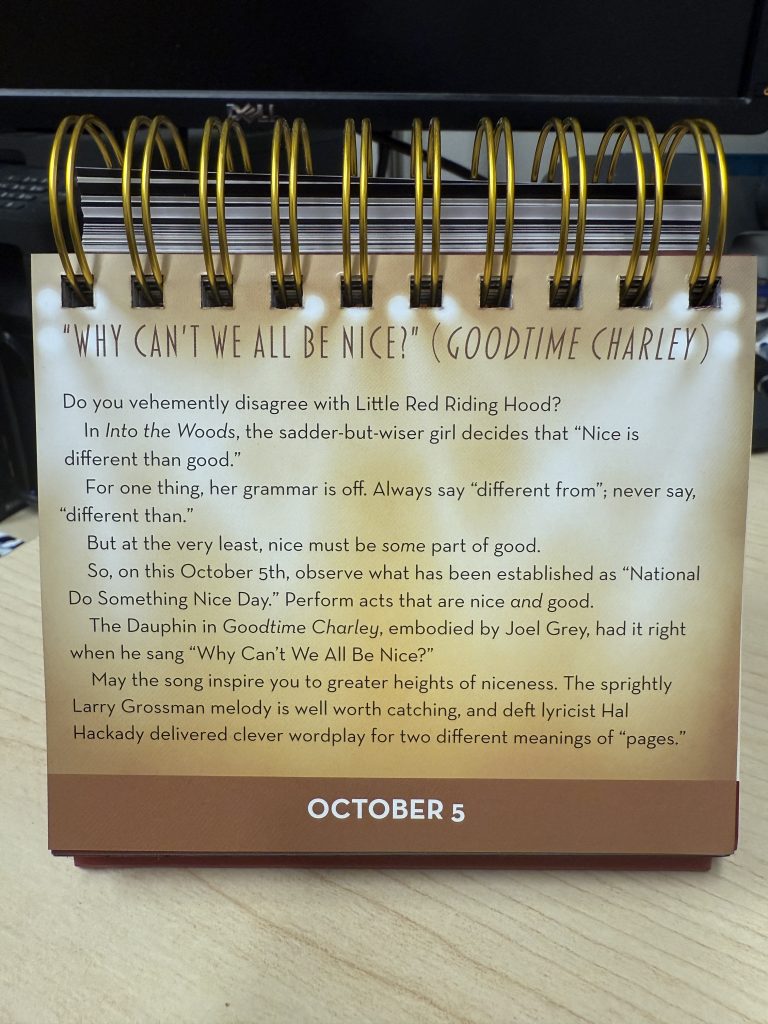 DELL
"WHY CAN'T WE ALL BE NICE?" (GOODTIME CHARLEY)
Do you vehemently disagree with Little Red Riding Hood?
In Into the Woods, the sadder-but-wiser girl decides that "Nice is
different than good."
For one thing, her grammar is off. Always say "different from"; never say,
"different than."
But at the very least, nice must be some part of good.
So, on this October 5th, observe what has been established as "National
Do Something Nice Day." Perform acts that are nice and good.
The Dauphin in Goodtime Charley, embodied by Joel Grey, had it right
when he sang "Why Can't We All Be Nice?"
May the song inspire you to greater heights of niceness. The sprightly
Larry Grossman melody is well worth catching, and deft lyricist Hal
Hackady delivered clever wordplay for two different meanings of "pages."
OCTOBER 5